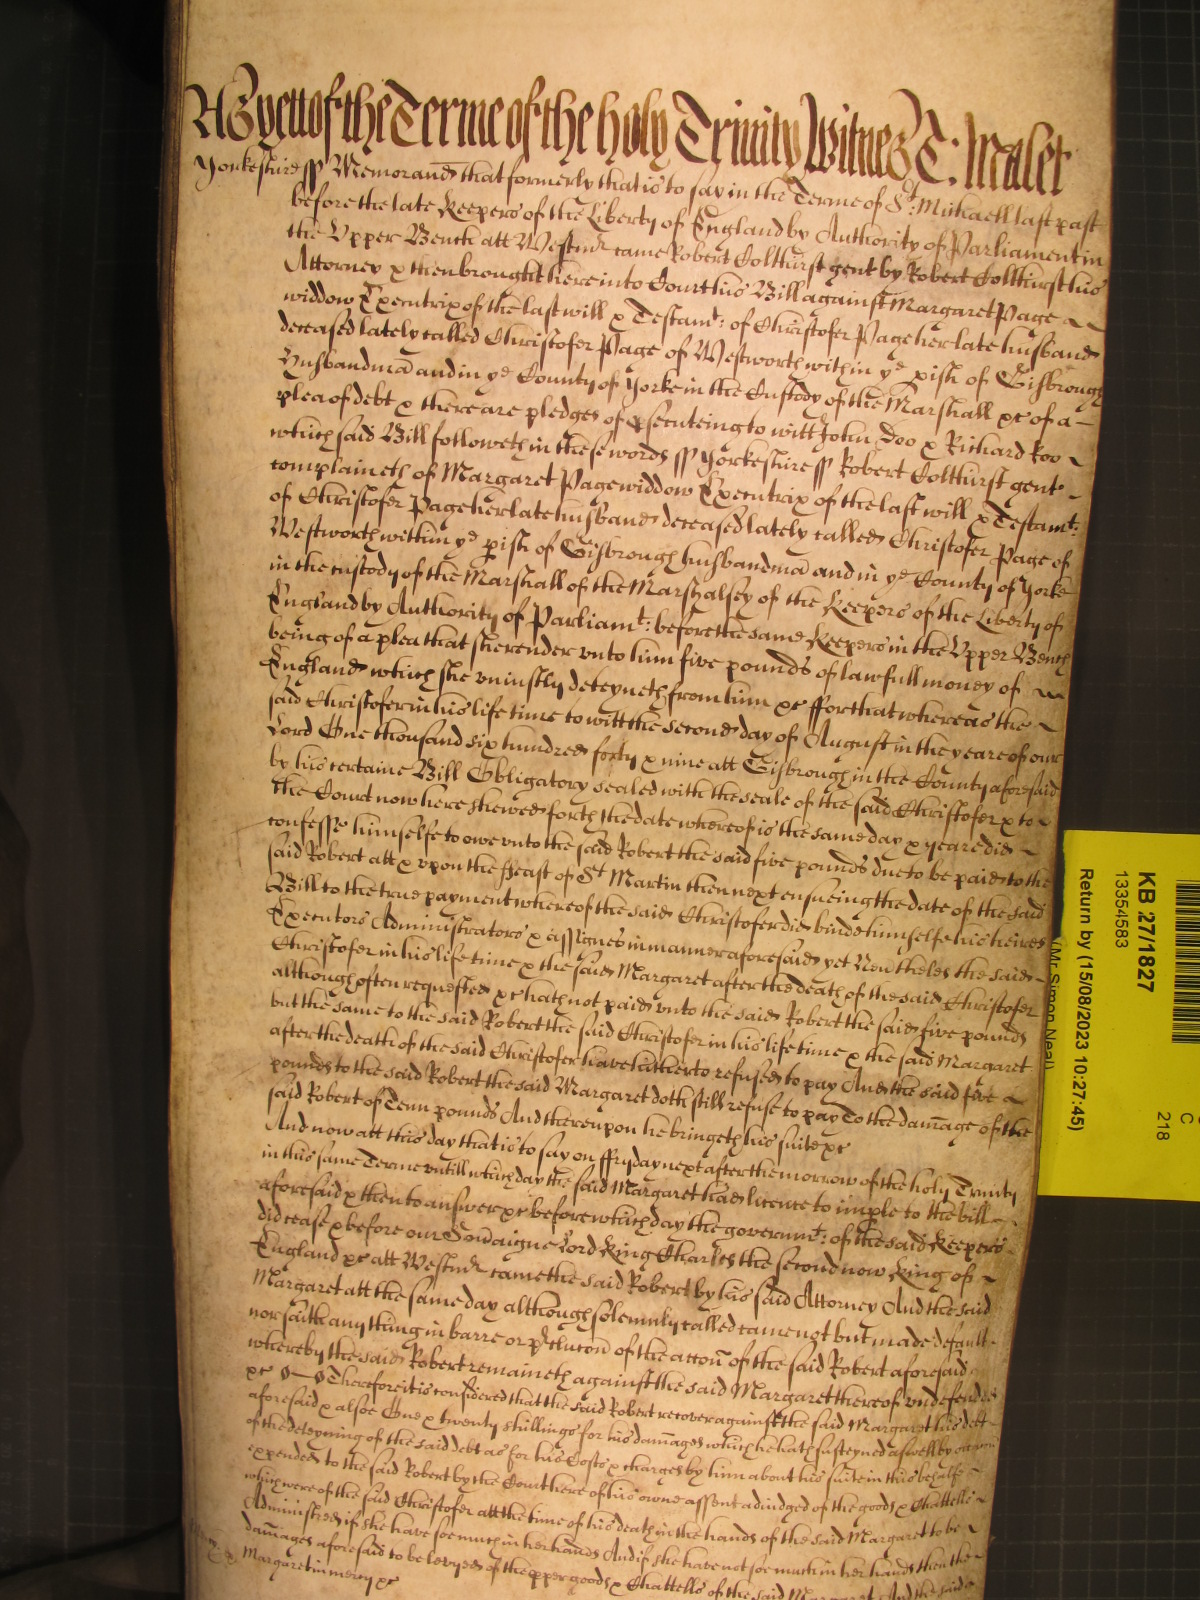 As yett of the Terme of the holy Trinity Witnes T: Malet
Yorkeshire ss Memorand that formerly that is to say in the Terme of St: Michaell last past
before the late Keepers of the Liberty of England by Authority of Parliament in
the Upper Bench att Westmr came Robert Colthurst gent by Robert Colthurst his
Attorney & then brought here into Court his Bill against Margaret Page
widdow Executrix of the last will & Testamt: of Christofer Page her late husband
deceased lately called Christofer Page of Westworth within ye pish of Gisbrough
Husbandma and in ye County of Yorke in the Custody of the Marshall &c of a
plea of debt & there are pledges of psecuteing to witt John Doo & Richard Roo
which said Bill followeth in these words ss Yorkeshire ss Robert Colthurst gent
complaineth of Margaret Page widdow Executrix of the last will & Testamt:
of Christofer Page her late husband deceased lately called Christofer Page of
Westworth within ye pish of Gisbrough husbandma and in ye County of Yorke
in the custody of the Marshall of the Marshalsey of the Keepers of the Liberty of
England by Authority of Parliamt: before the same Keepers in the Upper Bench
being of a plea that she render vnto him five pounds of lawfull money of
England which she vniustly deteyneth from him &c ffor that whereas the
said Christofer in his life time to witt the second day of August in the yeare of our
Lord One thousand six hundred forty & nine att Gisbrough in the County aforesaid
by his certaine Bill Obligatory sealed with the seale of the said Christofer & to
the Court now here shewed forth the date whereof is the same day & yeare did
confesse himselfe to owe vnto the said Robert the said five pounds due to be paid to the
said Robert att & vpon the Feast of St Martin then next ensueing the date of the said
Bill to the true payment whereof the said Christofer did binde himselfe his heires
Executors Administrators & Assignes in manner aforesaid yet Nevertheles the said
Christofer in his life time & the said Margaret after the death of the said Christofer
although often requested &c hath not paid vnto the said Robert the said five pounds
but the same to the said Robert the said Christofer in his life time & the said Margaret
after the death of the said Christofer have hitherto refused to pay And the said five
pounds to the said Robert the said Margaret doth still refuse to pay To the damage of the
said Robert of Tenn pounds And thereupon he bringeth his suite &c
And now att this day that is to say on ffryday next after the morrow of the holy Trinity
in this same Terme vntill which day the said Margaret had licence to imple to the bill
aforesaid & then to answer &c before which day the governmt: of the said Keepers
did cease & before our Soveraigne Lord King Charles the second now King of
England &c att Westmr came the said Robert by his said Attorney And the said
Margaret att the same day although solemnly called came not but made default
nor saith any thing in barre or pclucon of the accon of the said Robert aforesaid
whereby the said Robert remaineth against the said Margaret thereof vndefended
&c Therefore it is considered that the said Robert recover against the said Margaret his debt
aforesaid & alsoe One & twenty shillings for his damages which he hath susteyned aswell by occasion
of the deteyning of the said debt as for his Costs & charges by him about his suite in this behalfe
expended to the said Robert by the Court here of his owne assent adiudged of the goods & Chattells
which were of the said Christofer att the time of his death in the hands of the said Margaret to be
Administred if she have soe much in her hands And if she have not soe much in her hands then the
damages aforesaid to be levyed of the pper goods & Chattells of the said Margaret And the said
Margaret in mercy &c
KB 27/1827
133545583
C
218
Return by (15/08/2023 10:27:45)
(Mr Simon Neal)